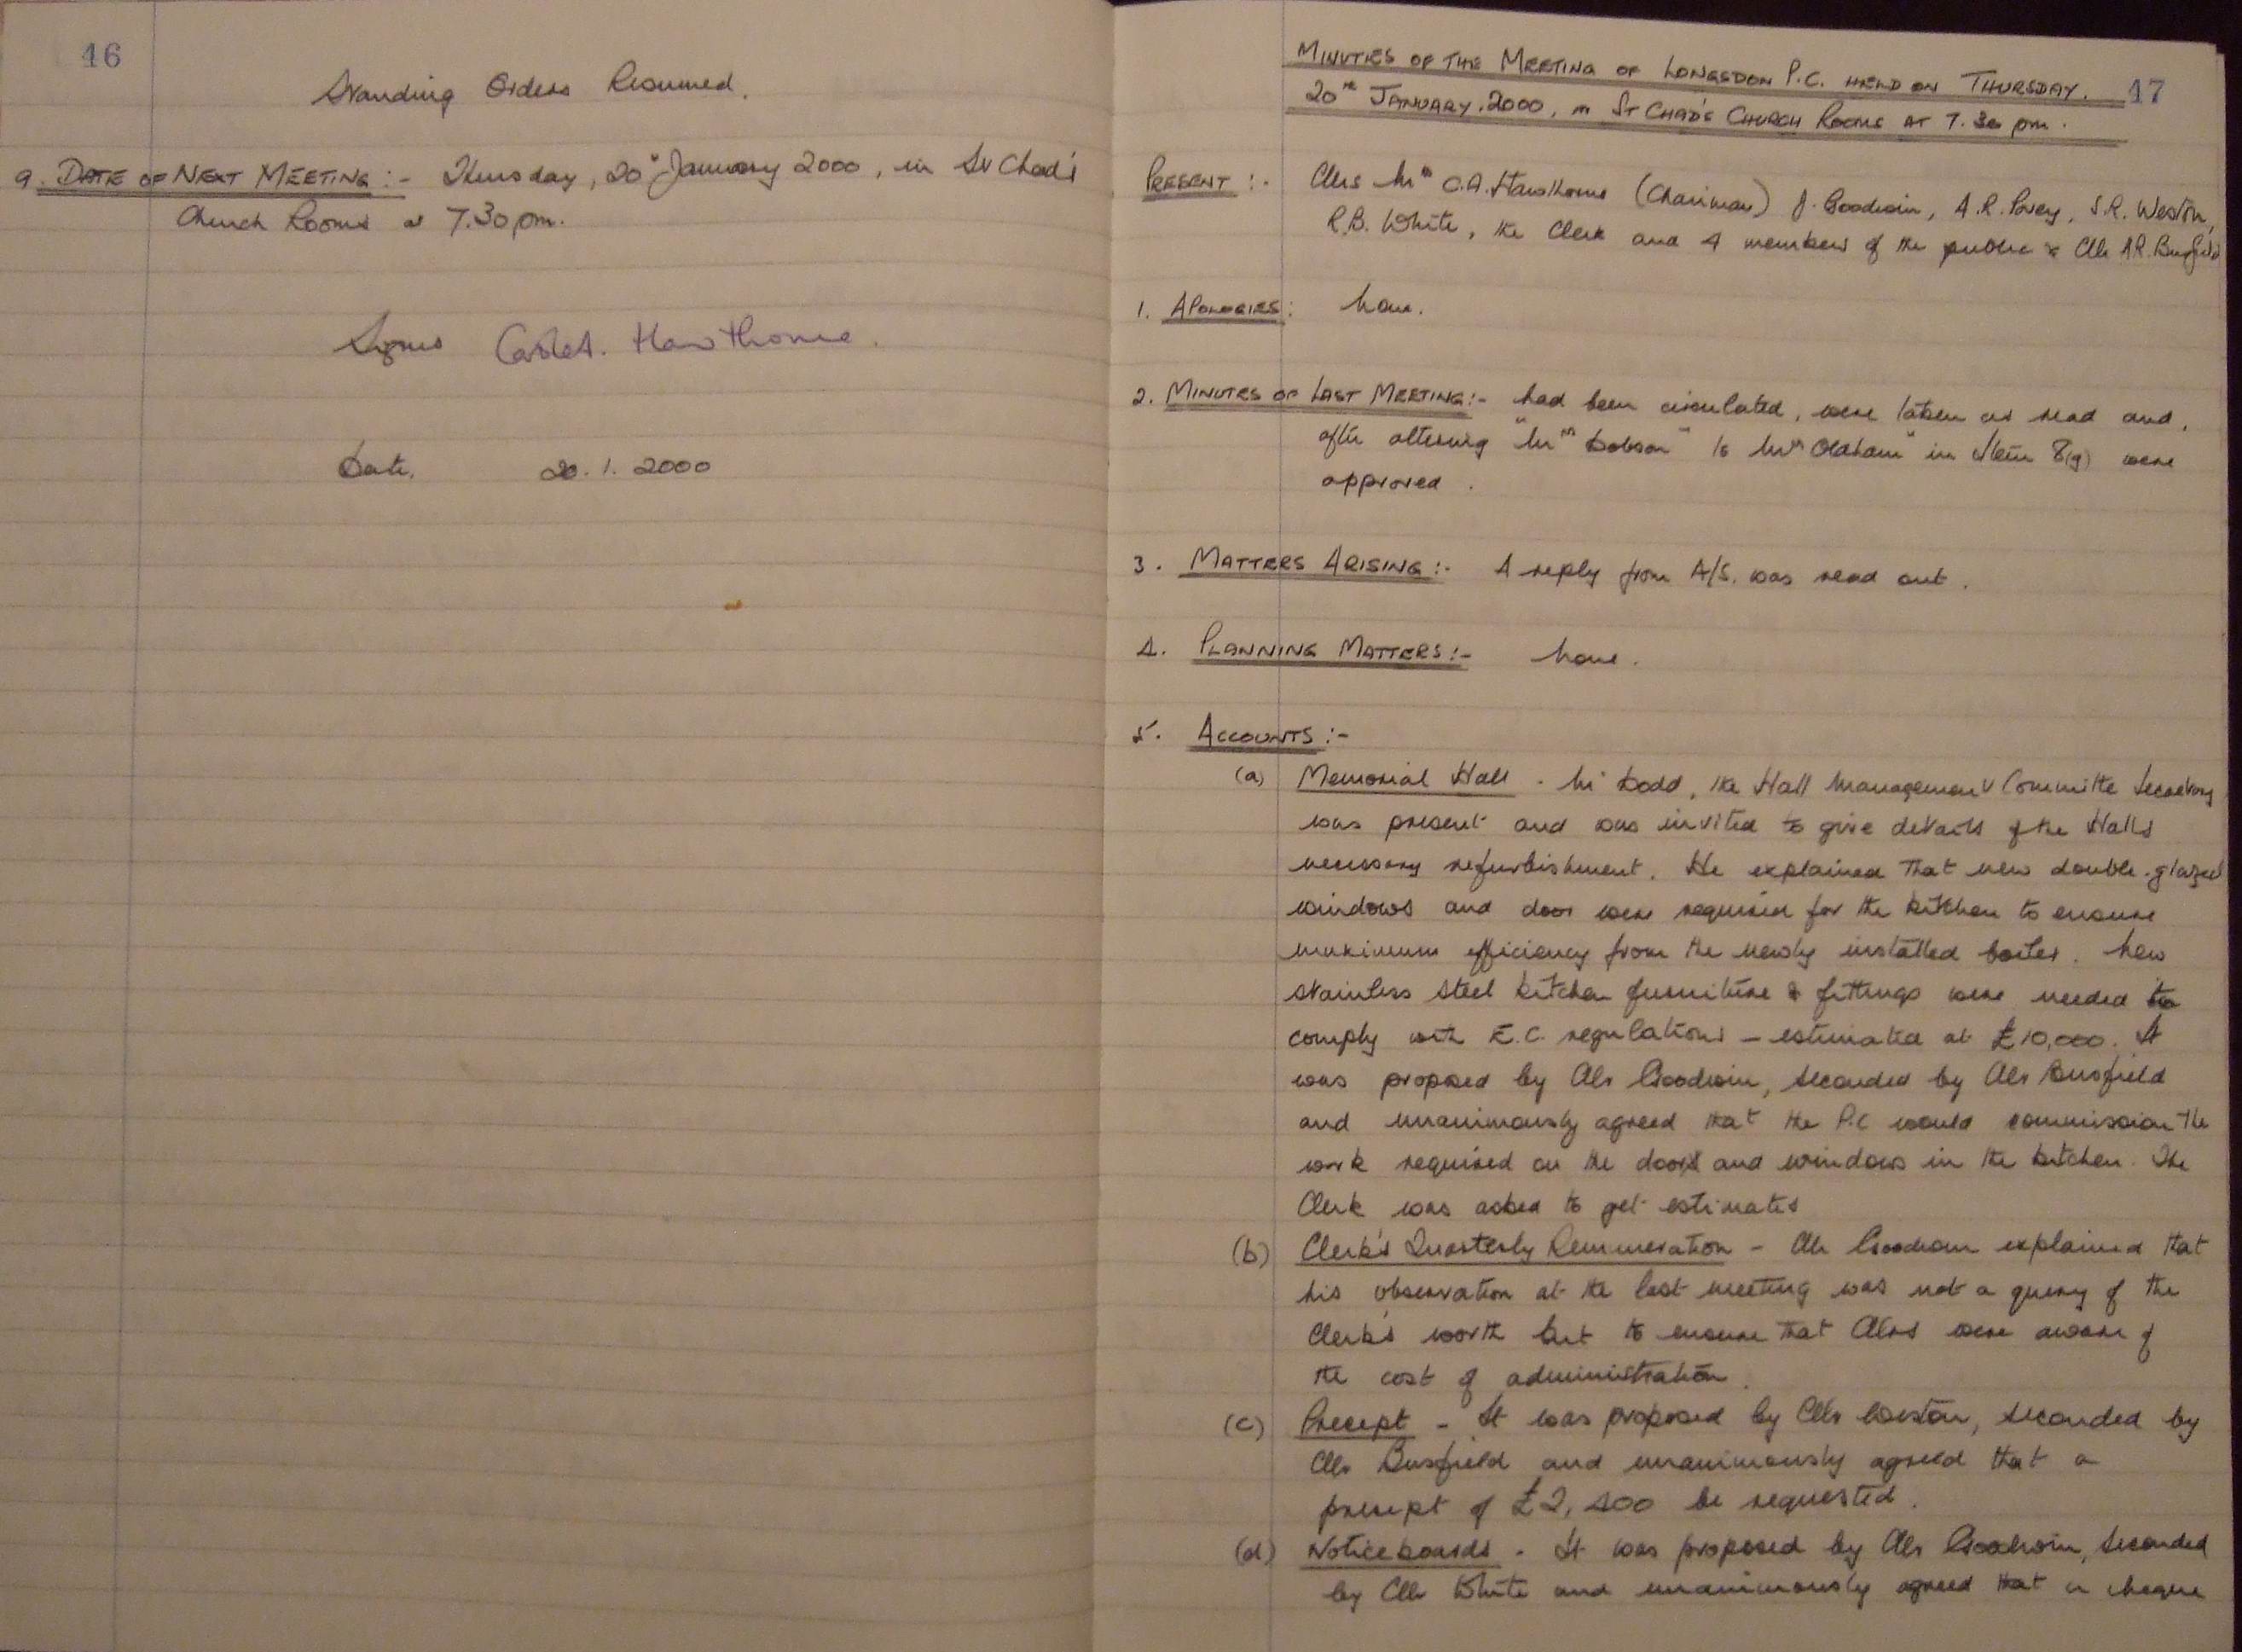 46
Standing Orders Resumed.
9. DATE OF NEXT MEETING :- Thursday, 20th January 2000, in St Chad's
Church Rooms at 7.30pm.
Signed Carole A. Hawthorne.
Date. 20. 1. 2000
47
MINUTES OF THE MEETING OF LONGSDON P.C. HELD ON THURSDAY.
20TH JANUARY. 2000, in ST CHAD'S CHURCH ROOMS AT 7.30 pm.
PRESENT :- Cllrs Mrs C.A. Hawthorne (Chairman) J. Goodwin, A.R. Povey, S.R. Weston,
R.B. White, the Clerk and 4 members of the public & Cllr A.R. Busfield
1. APOLOGIES: None.
2. MINUTES OF LAST MEETING:- had been circulated, were taken as read and,
after altering "Mrs Dobson" to "Mrs Oldham" in Item 8(g) were
approved.
3. MATTERS ARISING:- A reply from A/S. was read out.
4. PLANNING MATTERS:- None.
5. ACCOUNTS:-
(a) Memorial Hall - Mr Dodd, the Hall Management Committe Secretary
was present and was invited to give details of the Halls
necessary refurbishment. He explained that new double-glazed
windows and door were required for the kitchen to ensure
maximum efficiency from the newly installed boiler. New
stainless steel kitchen furniture & fittings were needed to
comply with E.C. regulations - estimated at £10,000. It
was proposed by Cllr Goodwin, seconded by Cllr Busfield
and unanimously agreed that the P.C would commission the
work required on the doors and windows in the kitchen. The
Clerk was asked to get estimates
(b) Clerk's Quarterly Remuneration - Cllr Goodwin explained that
his observation at the last meeting was not a query of the
Clerk's worth but to ensure that Cllrs were aware of
the cost of administration.
(c) Precept - It was proposed by Cllr Weston, seconded by
Cllr Busfield and unanimously agreed that a
precept of £2,400 be requested.
(d) Noticeboards - It was proposed by Cllr Goodwin, seconded
by Cllr White and unanimously agreed that a cheque